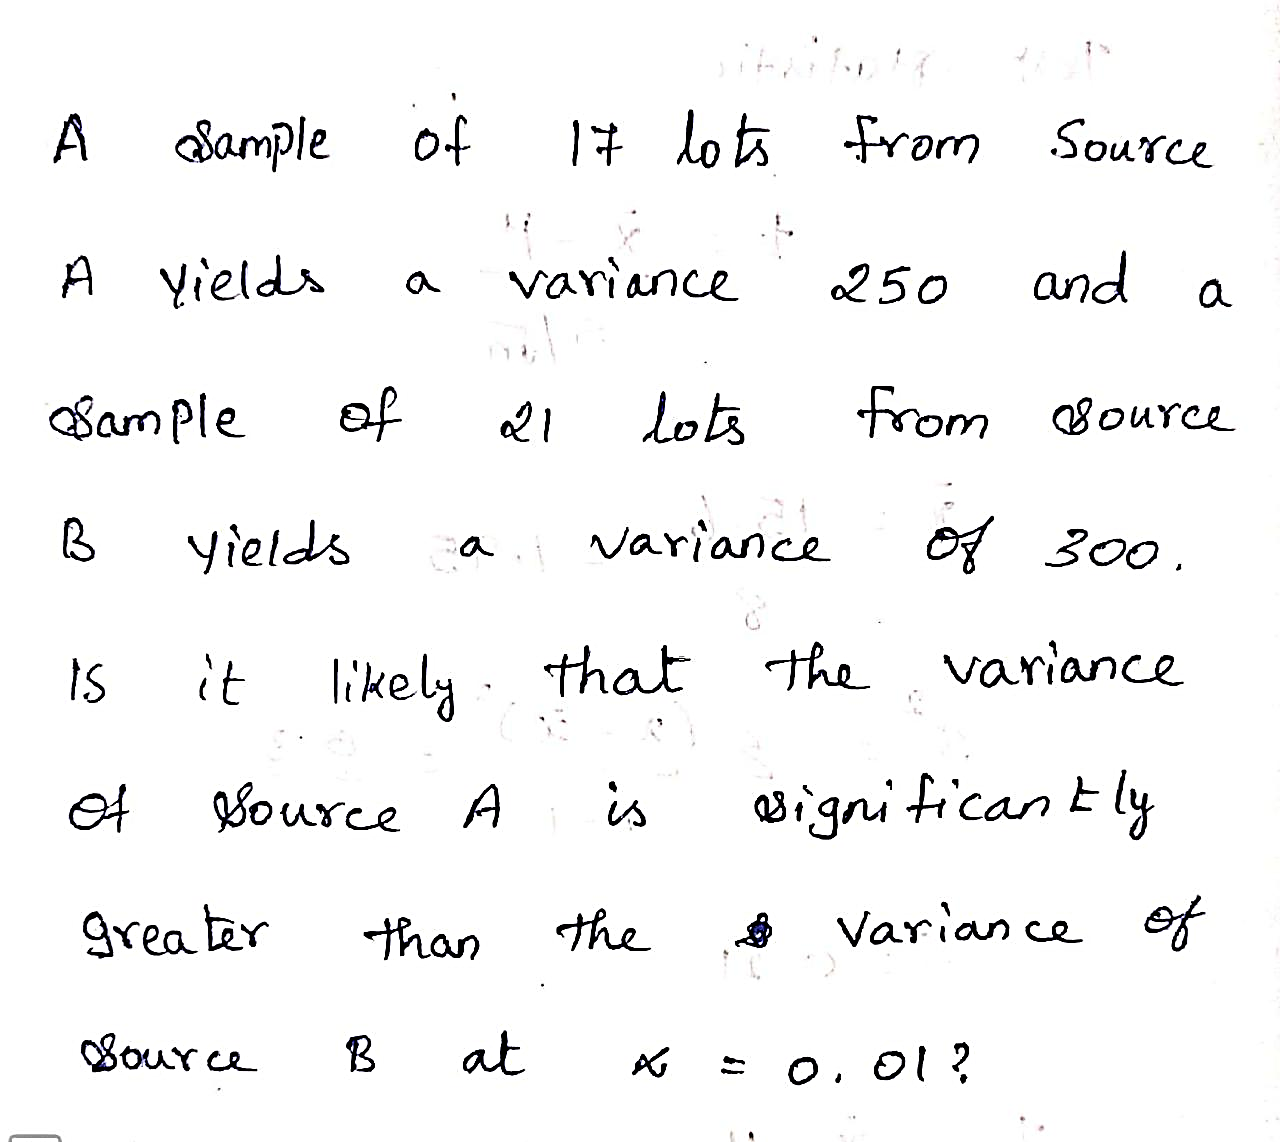 A sample of 17 lots from Source
A yields a variance 250 and a
sample of 21 lots from source
B yields a variance of 300.
Is it likely that the variance
of source A is significantly
greater than the variance of
source B at α = 0.01?